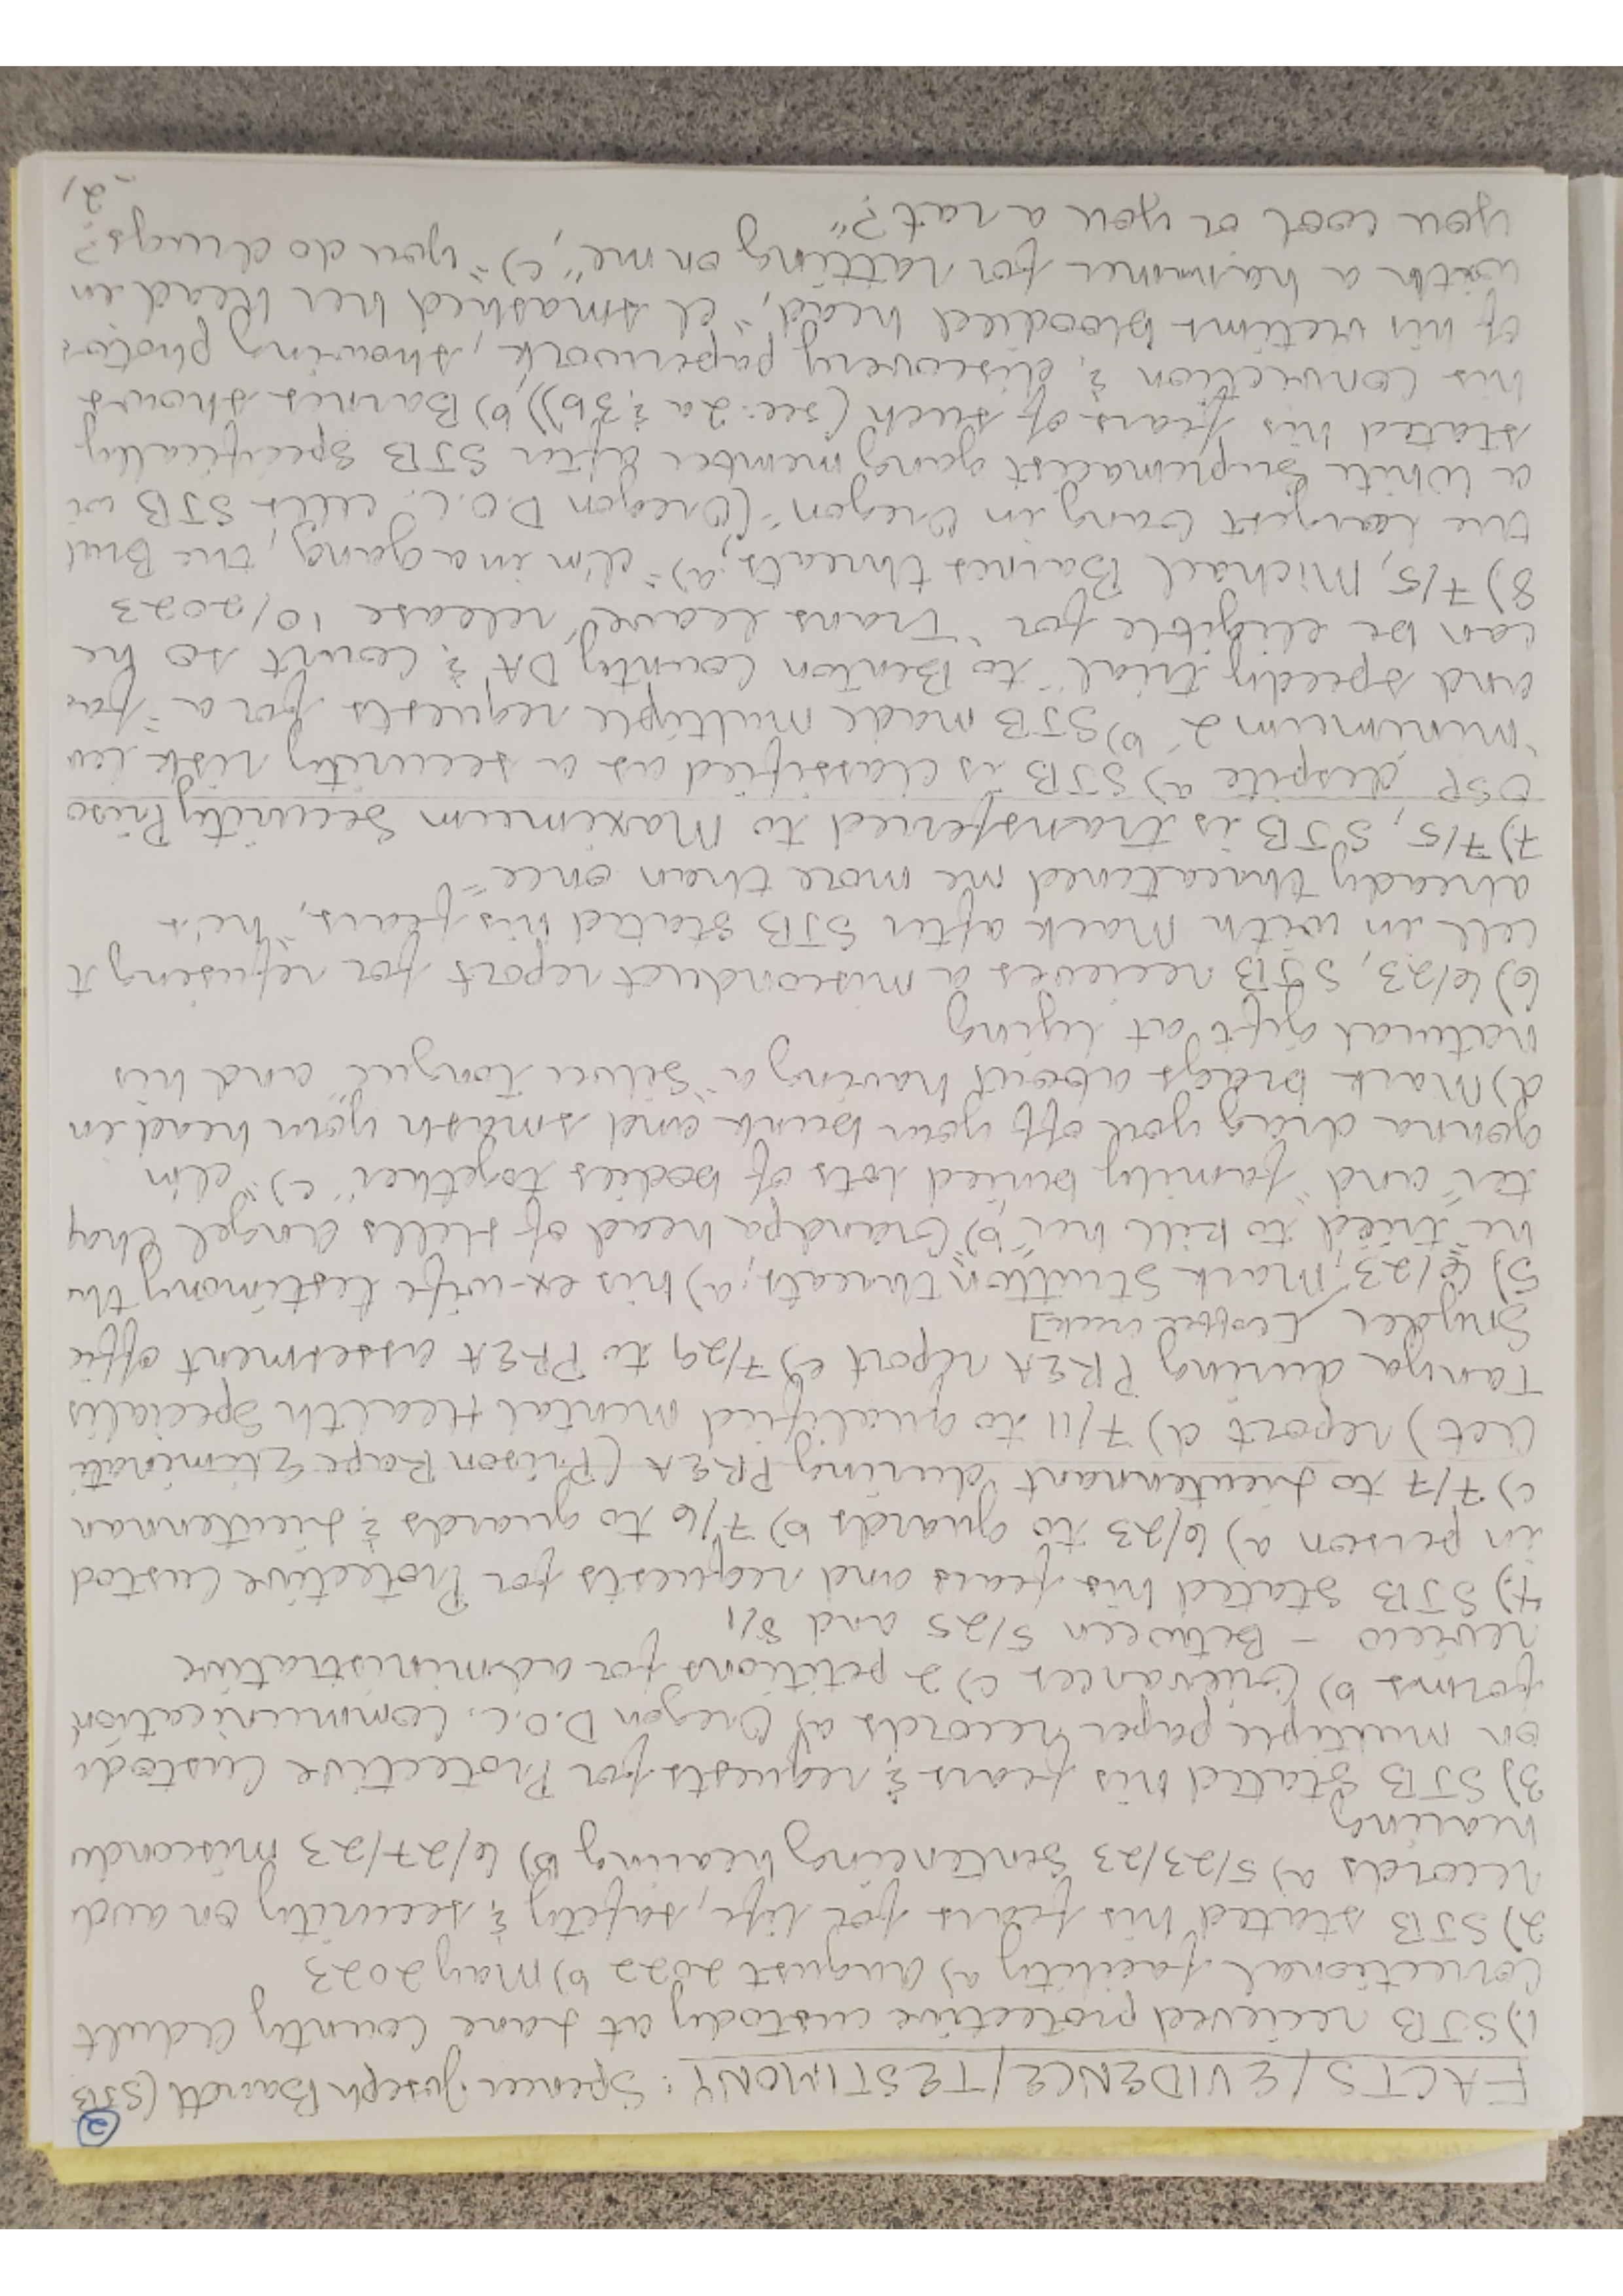 ②
FACTS/EVIDENCE/TESTIMONY: Spencer Joseph Barrett (STB
1) STB recieved protective custody at Lane County Adult
Correctional facility a) August 2022 b) May 2023
2) STB stated his fears for life, safety & security on audi
records a) 5/23/23 Sentencing hearing b) 6/27/23 miscondu
hearing
3) STB stated his fears & requests for Protective Custodi
on multiple paper records a) Oregon D.O.C. Communication
forms b) Grievances c) 2 petitions for administrative
review - Between 5/25 and 8/1
4) STB stated his fears and requests for Protective Custod
in person a) 6/23 to guards b) 7/6 to guards & Lieutennan
c) 7/7 to Lieutennant during PREA (Prison Rape Eliminati
Act) report d) 7/11 to qualified Mental Health Specialis
Tanya during PREA report e) 7/29 to PREA assesment offic
Snyder
5) 6/23, Mark Stutton threats; a) his ex-wife testimony tha
he "tried to kill her" b) Grandpa head of Hells Angel Chap
ter and "family buried lots of bodies together" c) "I'm
gonna drag you off your bunk and smash your head in
d) Mark brags about having a "Silver Tongue" and his
natural gift at lying
6) 6/23, STB recieves a misconduct report for refusing t
cell in with Mark after STB stated his fears, "he's
already threatened me more than once"
7) 7/5, STB is transferred to Maximum Security Priso
OSP despite a) STB is classified as a security risk lev
"minimum 2" b) STB made multiple requests for a "fai
and speedy trial" to Benton County DA & Court so he
can be eligible for "Trans Leave" release 10/2023
8) 7/5, Michael Barnes threats; a) "I'm in a gang, the Brut
the largest Gang in Oregon" (Oregon D.O.C. cells STB wi
a White Supremacist gang member after STB specifically
stated his fears of such (see: 2a & 3b)) b) Barnes shows
his conviction & discovery paperwork, showing photos
of his victims bloodied head, "I smashed her head in
with a hammer for ratting on me", c) "you do drugs?
you cool or you a rat?"